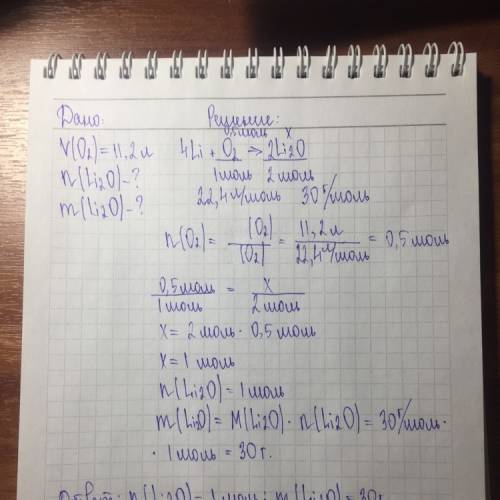 Дано: Решение:
0,5 моль x
V(O₂)=11,2 л 4Li + O₂ → 2Li₂O
n(Li₂O)-? 1 моль 2 моль
m(Li₂O)-? 22,4 л/моль 30 г/моль
n(O₂)= (O₂)/(O₂) = 11,2 л/22,4 л/моль = 0,5 моль
0,5 моль/1 моль = X/2 моль
x = 2 моль · 0,5 моль
x = 1 моль
n(Li₂O)=1 моль
m(Li₂O)= M(Li₂O) · n(Li₂O) = 30 г/моль ·
· 1 моль = 30 г.
Ответ: n(Li₂O)=1 моль; m(Li₂O)=30г.